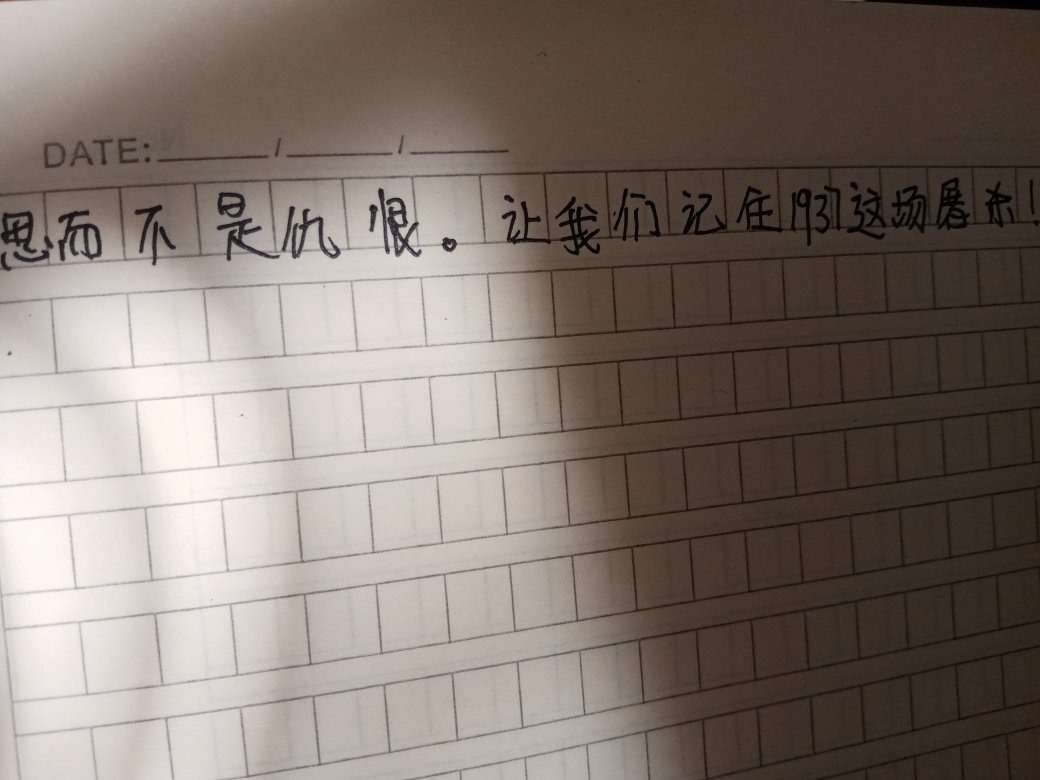 DATE: / /
思而不是仇恨。让我们记住1937这场屠杀!